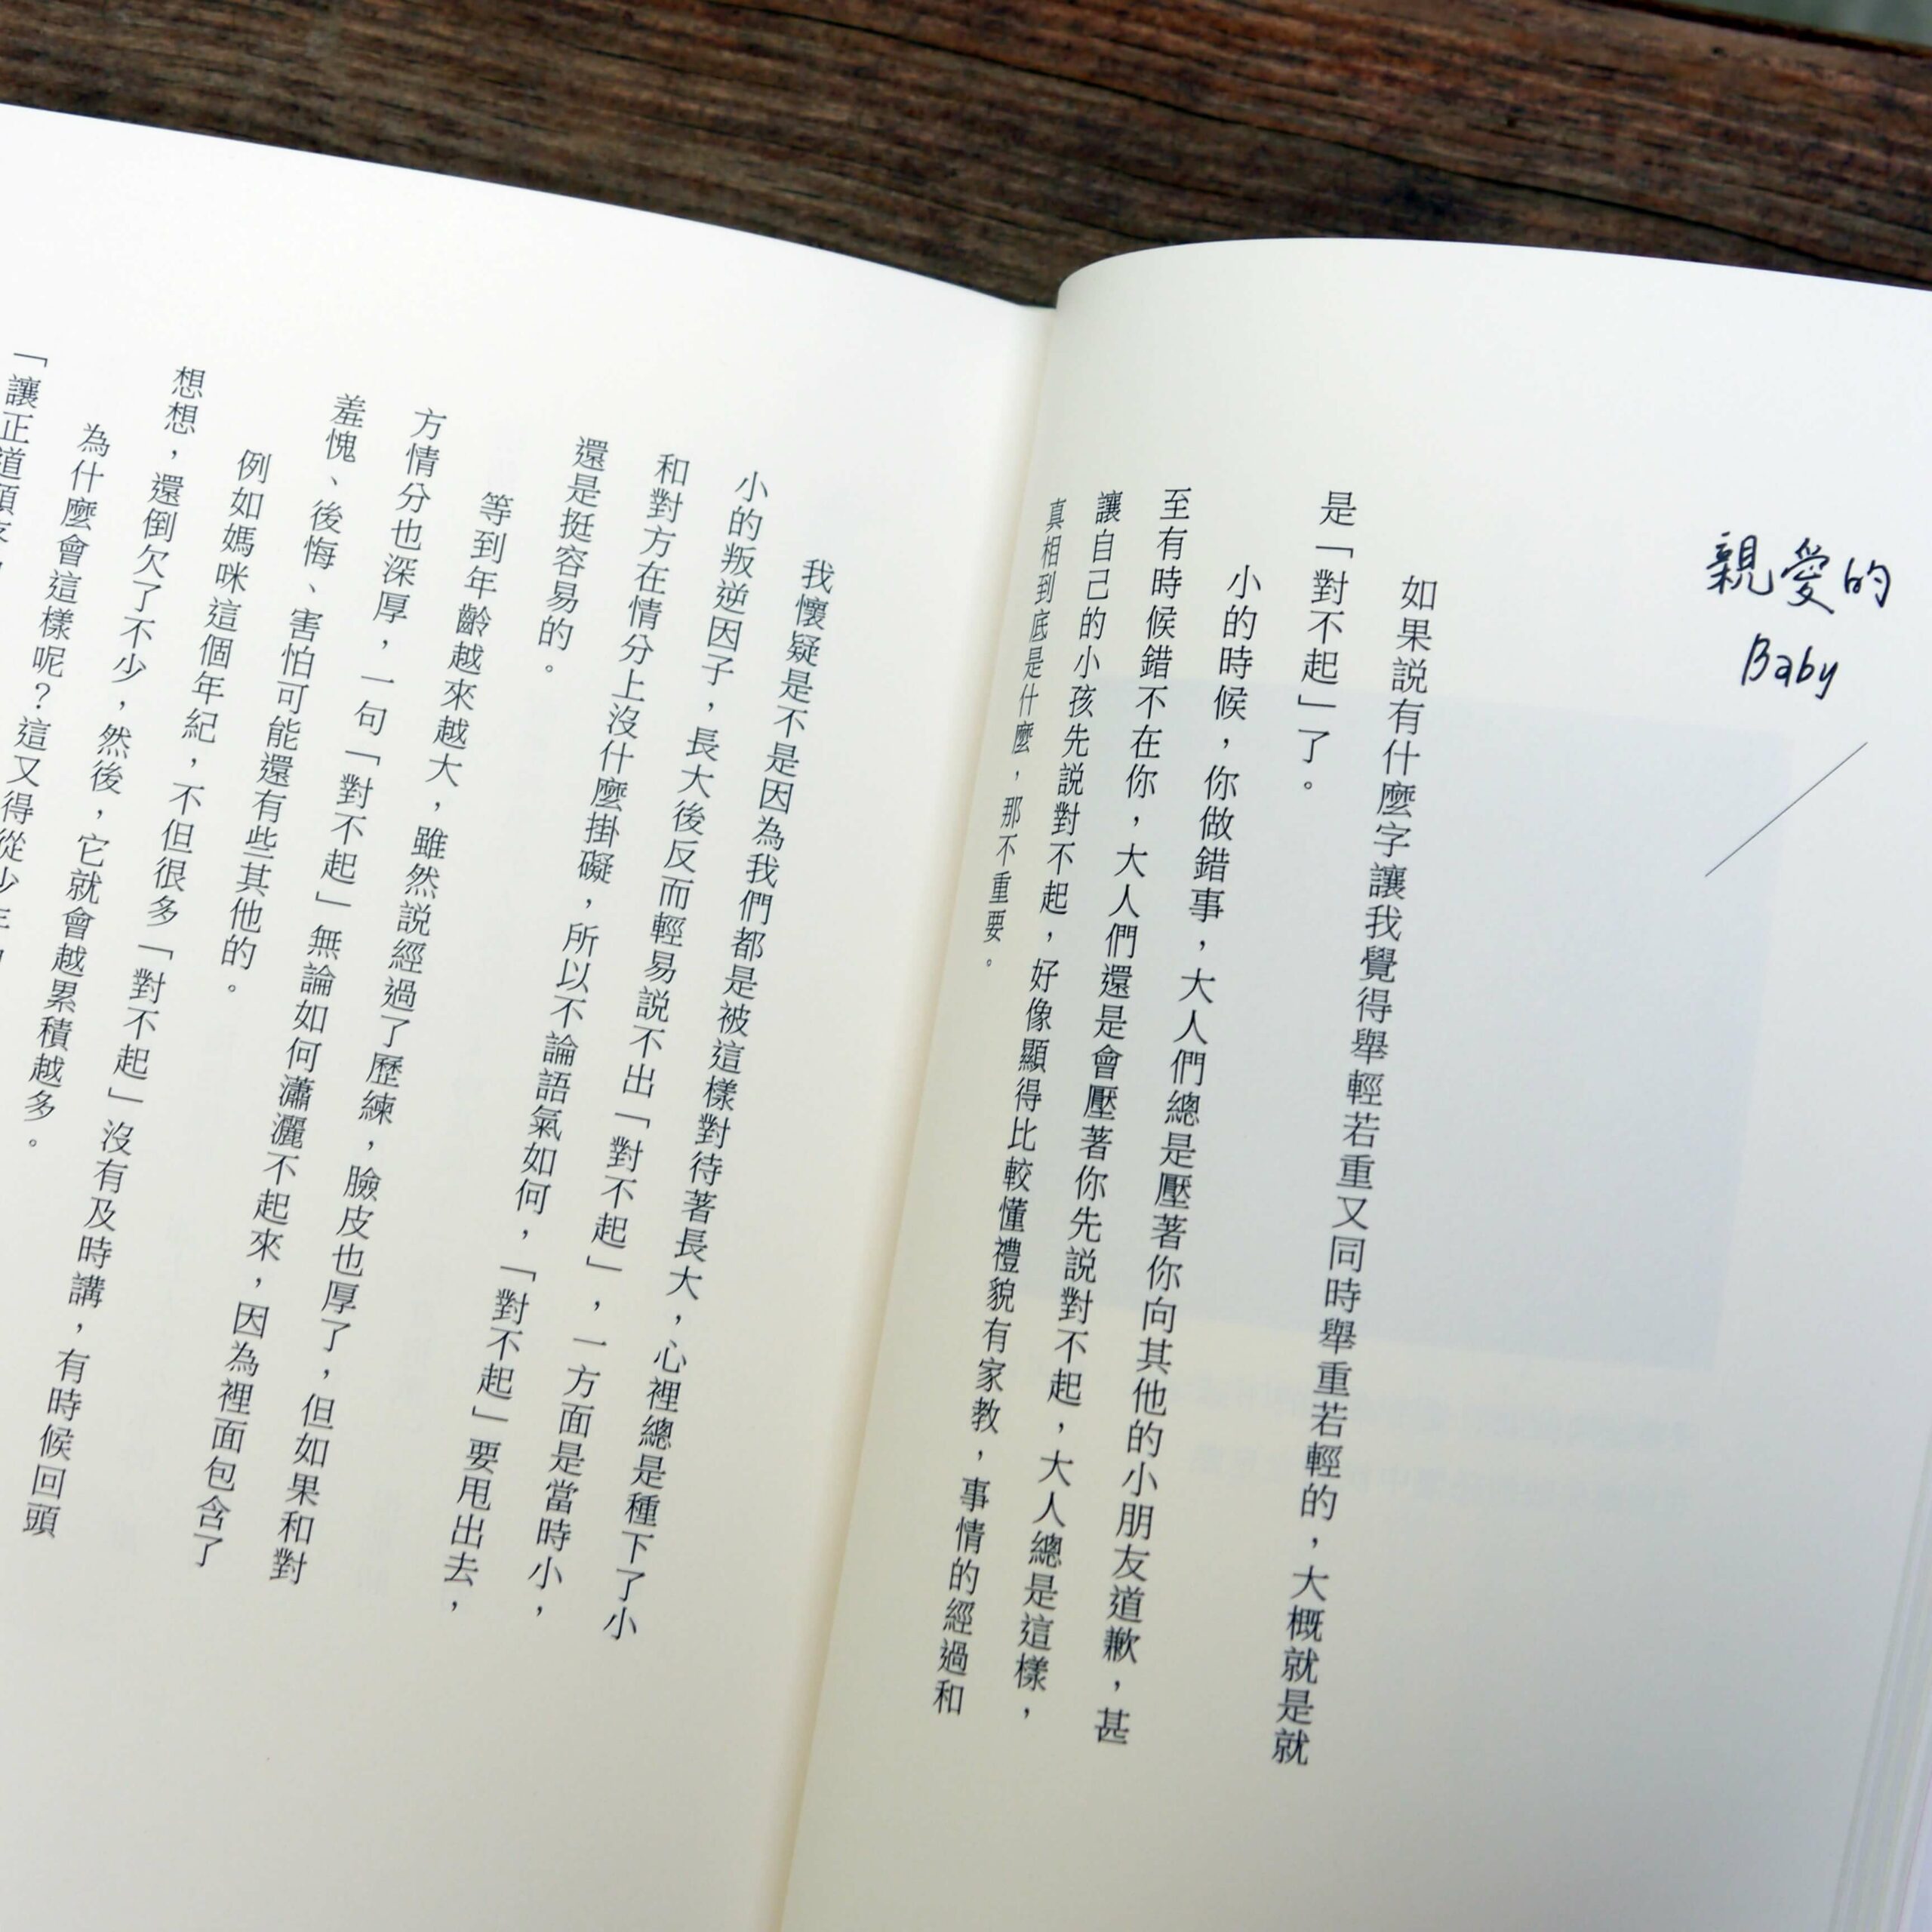 親愛的
Baby
如果說有什麼字讓我覺得舉輕若重又同時舉重若輕的，大概就是就
是「對不起」了。
小的時候，你做錯事，大人們總是壓著你向其他的小朋友道歉，甚
至有時候錯不在你，大人們還是會壓著你先說對不起，大人總是這樣，
讓自己的小孩先說對不起，好像顯得比較懂禮貌有家教，事情的經過和
真相到底是什麼，那不重要。
我懷疑是不是因為我們都是被這樣對待著長大，心裡總是種下了小
小的叛逆因子，長大後反而輕易說不出「對不起」，一方面是當時小，
和對方在情分上沒什麼掛礙，所以不論語氣如何，「對不起」要甩出去，
還是挺容易的。
等到年齡越來越大，雖然說經過了歷練，臉皮也厚了，但如果和對
方情分也深厚，一句「對不起」無論如何瀟灑不起來，因為裡面包含了
羞愧、後悔、害怕可能還有些其他的。
例如媽咪這個年紀，不但很多「對不起」沒有及時講，有時候回頭
想想，還倒欠了不少，然後，它就會越累積越多。
為什麼會這樣呢？這又得從少年
「讓正道